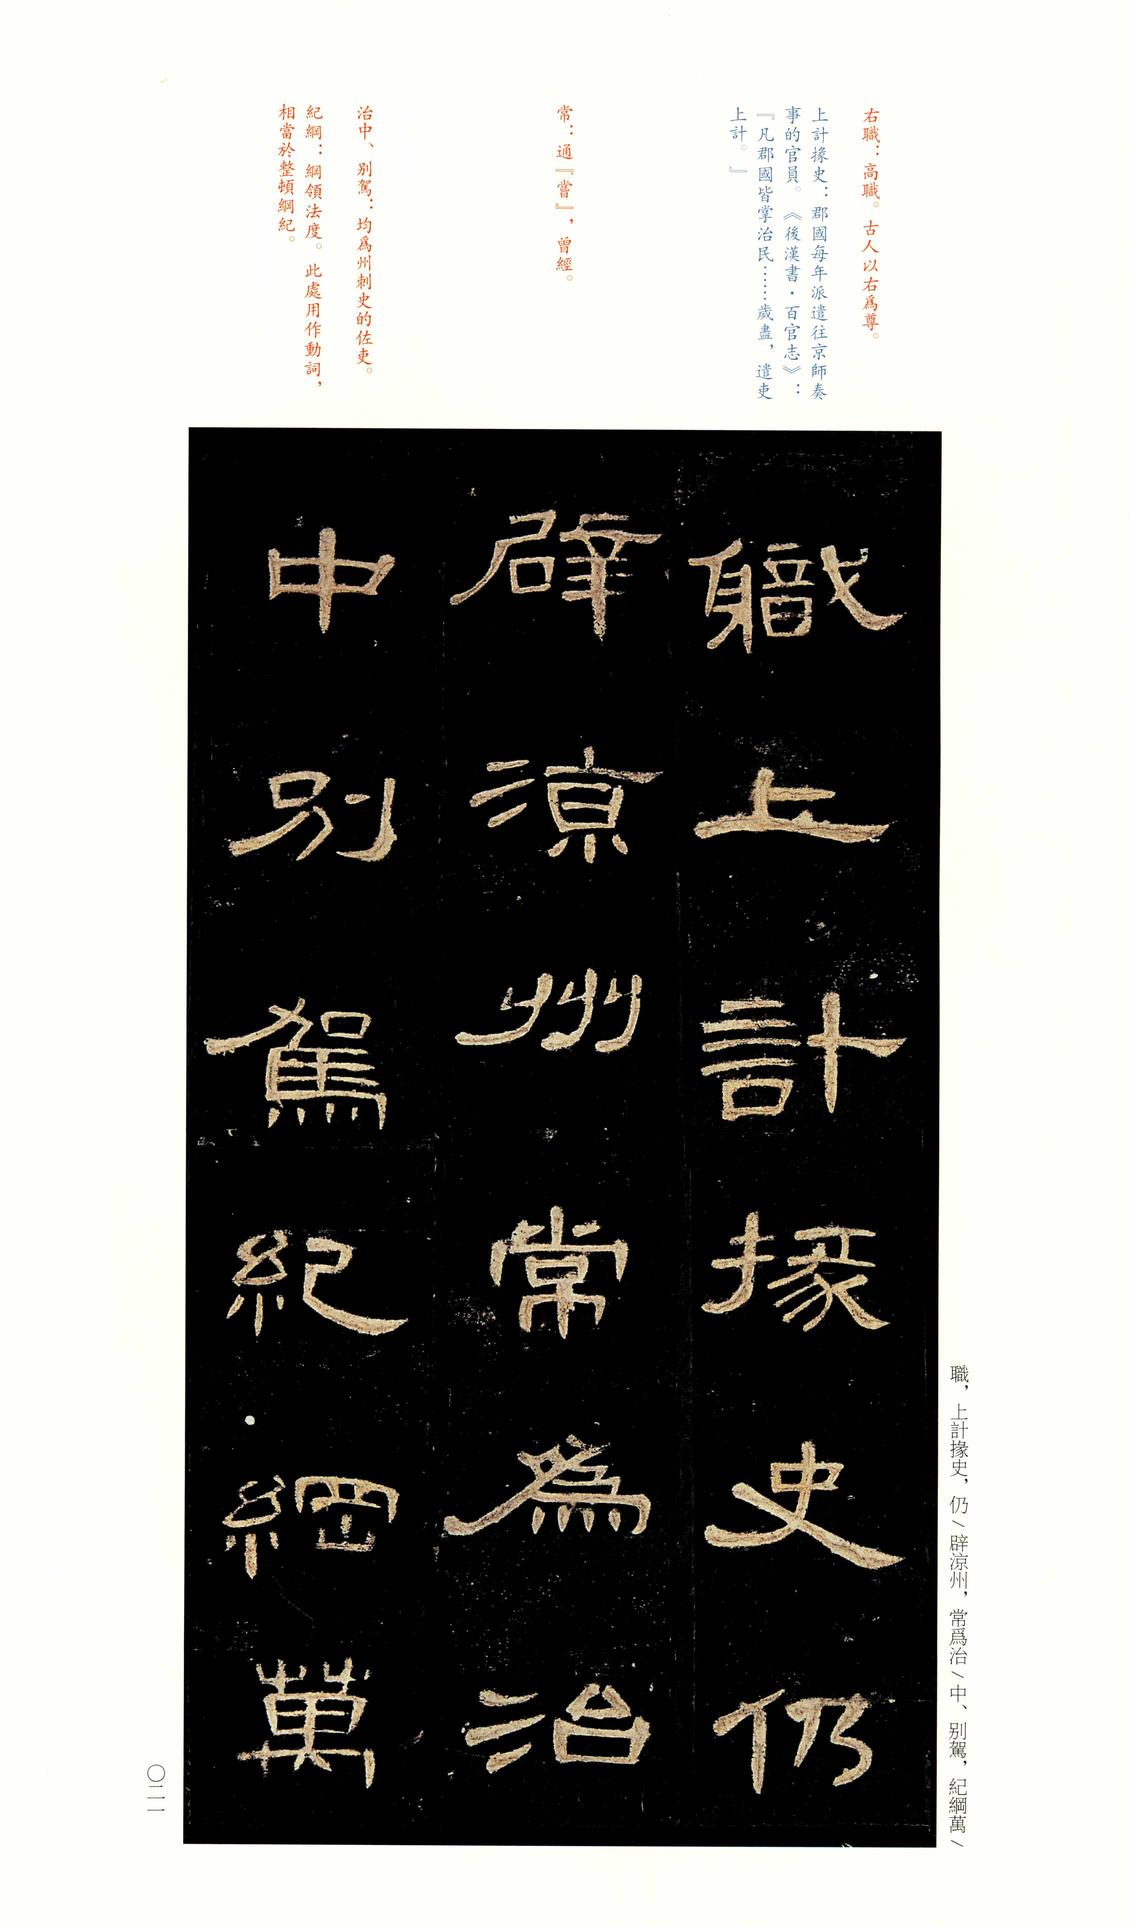 右職：高職。古人以右爲尊。
上計掾史：郡國每年派遣往京師奏
事的官員。《後漢書·百官志》：
『凡郡國皆掌治民……歲盡，遣吏
上計。』
常：通『嘗』，曾經。
治中、别駕：均爲州刺史的佐吏。
紀綱：綱領法度。此處用作動詞，
相當於整頓綱紀。
職上計掾史仍
辟涼州常為治
中別駕紀綱萬
職，上計掾史，仍／辟涼州，常爲治／中、别駕，紀綱萬／
〇二一